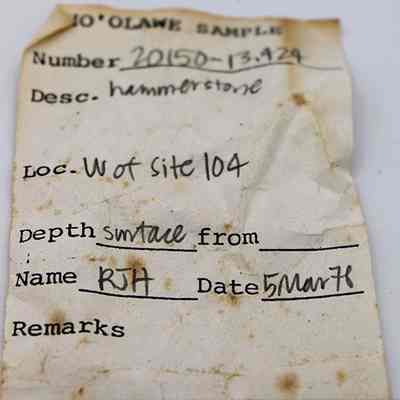 HO'OLAWE SAMPLE
Number 20150-13.424
Desc. hammerstone
Loc. W of site 104
Depth surface from
Name RJH Date 5 Mar 78
Remarks